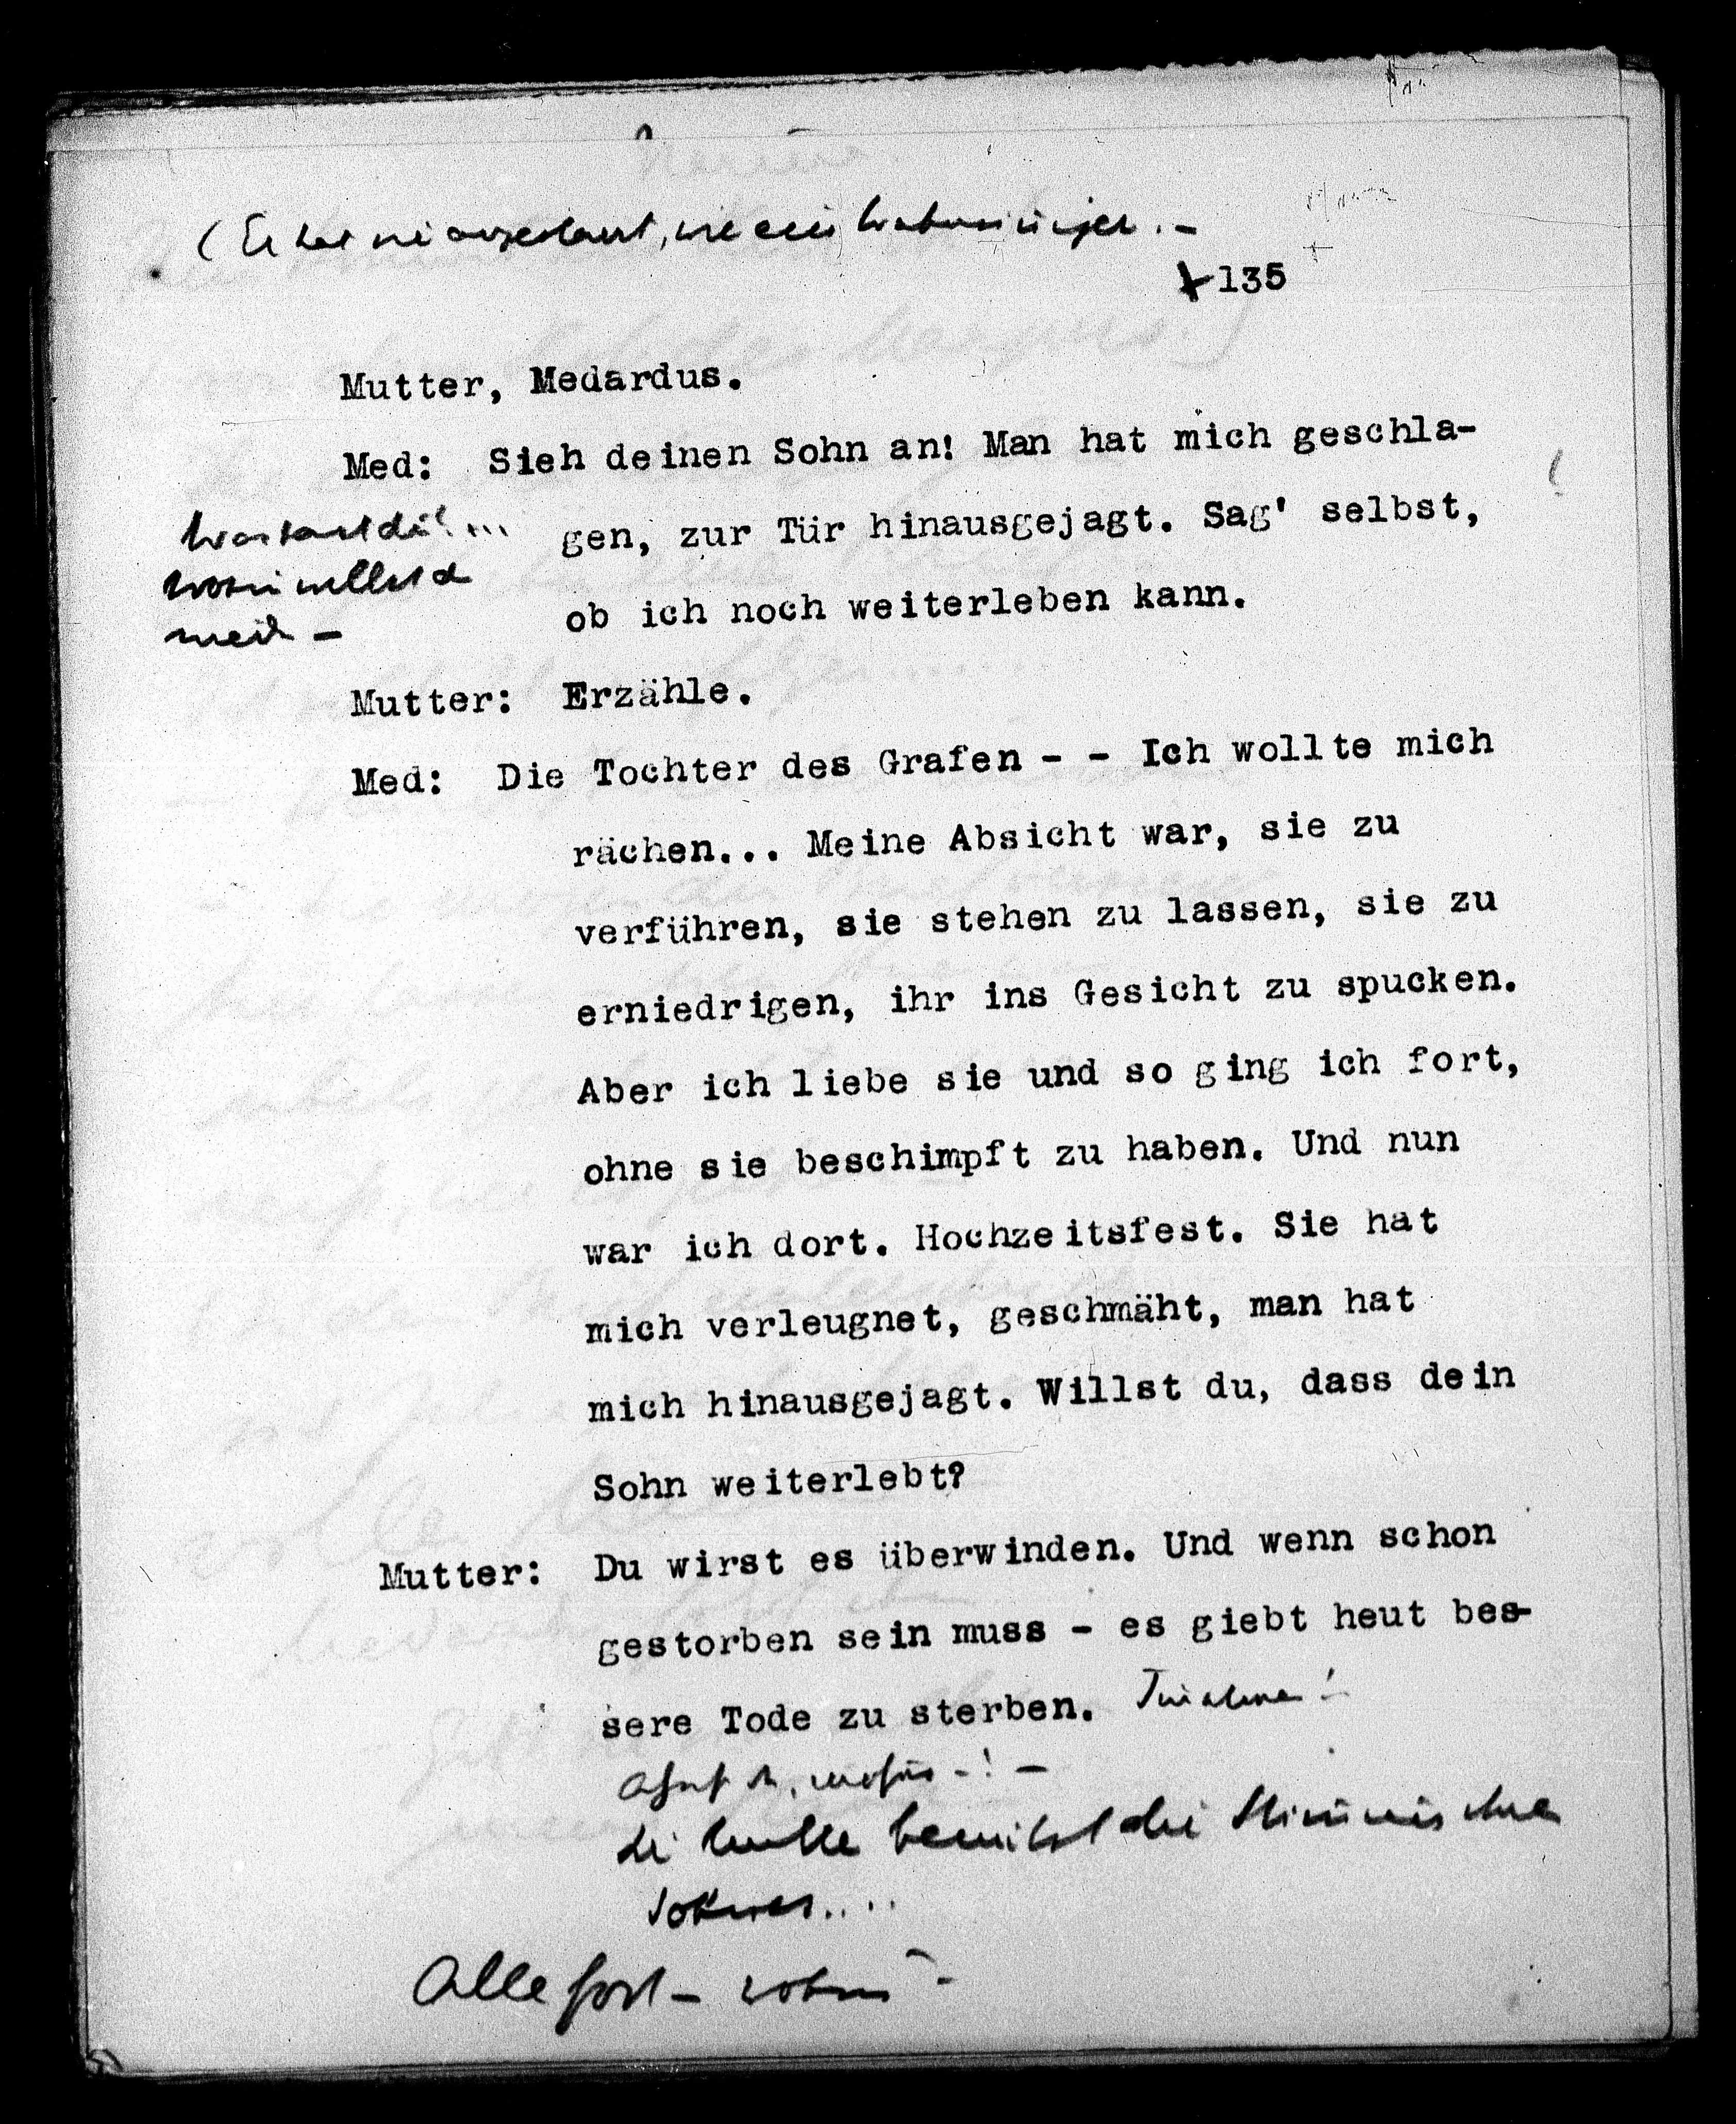 (Er hat sie angestarrt, wie ein Wahnsinniger. –
135
Mutter, Medardus.
Med: Sieh deinen Sohn an! Man hat mich geschla-
Was hast du? ...
gen, zur Tür hinausgejagt. Sag' selbst,
ob ich noch weiterleben kann.
Mutter: Erzähle.
Med: Die Tochter des Grafen - - Ich wollte mich
rächen... Meine Absicht war, sie zu
verführen, sie stehen zu lassen, sie zu
erniedrigen, ihr ins Gesicht zu spucken.
Aber ich liebe sie und so ging ich fort,
ohne sie beschimpft zu haben. Und nun
war ich dort. Hochzeitsfest. Sie hat
mich verleugnet, geschmäht, man hat
mich hinausgejagt. Willst du, dass dein
Sohn weiterlebt?
Mutter: Du wirst es überwinden. Und wenn schon
gestorben sein muss - es giebt heut bes-
sere Tode zu sterben.
Alle fort –